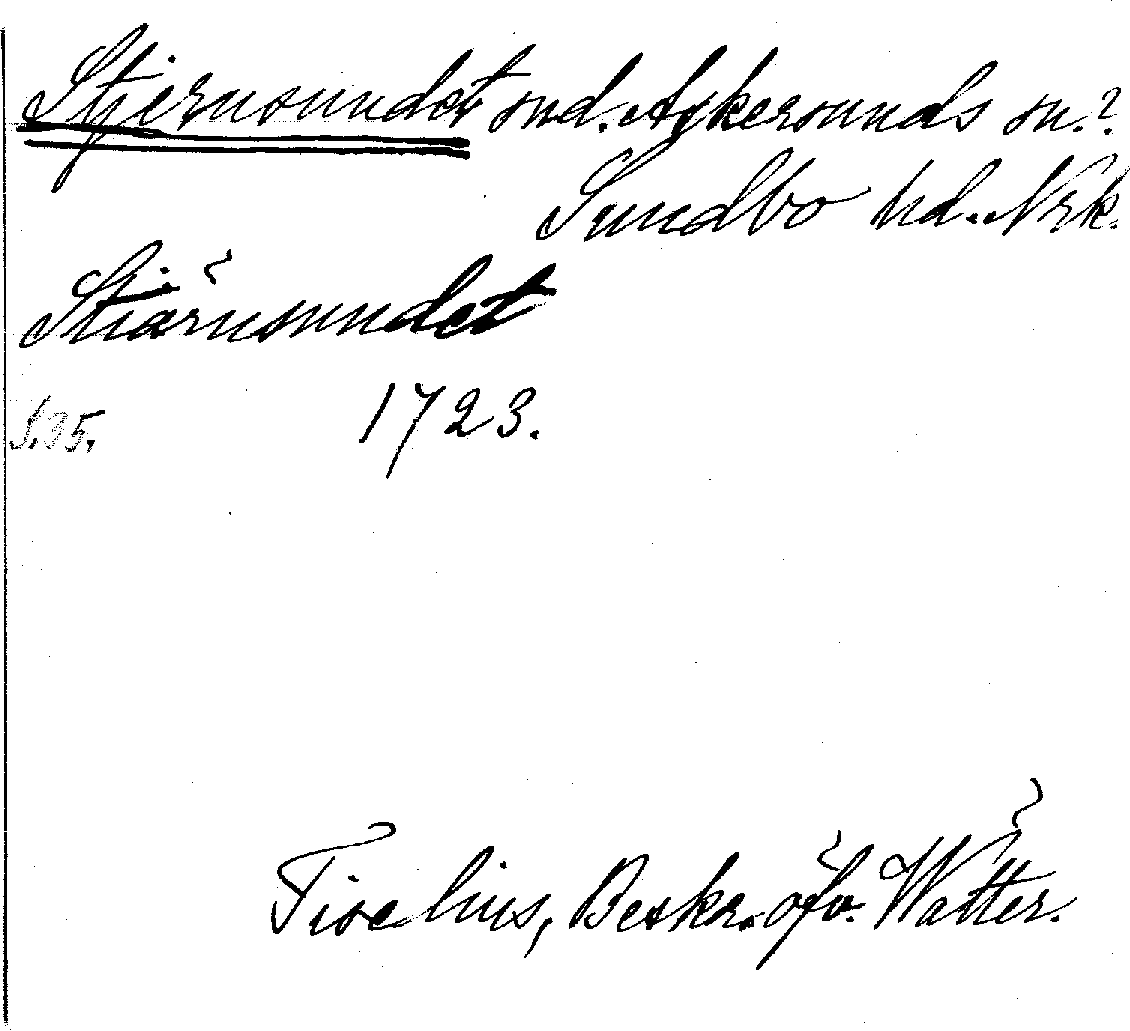 Stjernsundet snd. Askersunds sn.?
Sundbo hd. Nrk.
Stiärnsundet
S.35. 1723.
Tiselius, Beskr. öfv. Wätter.